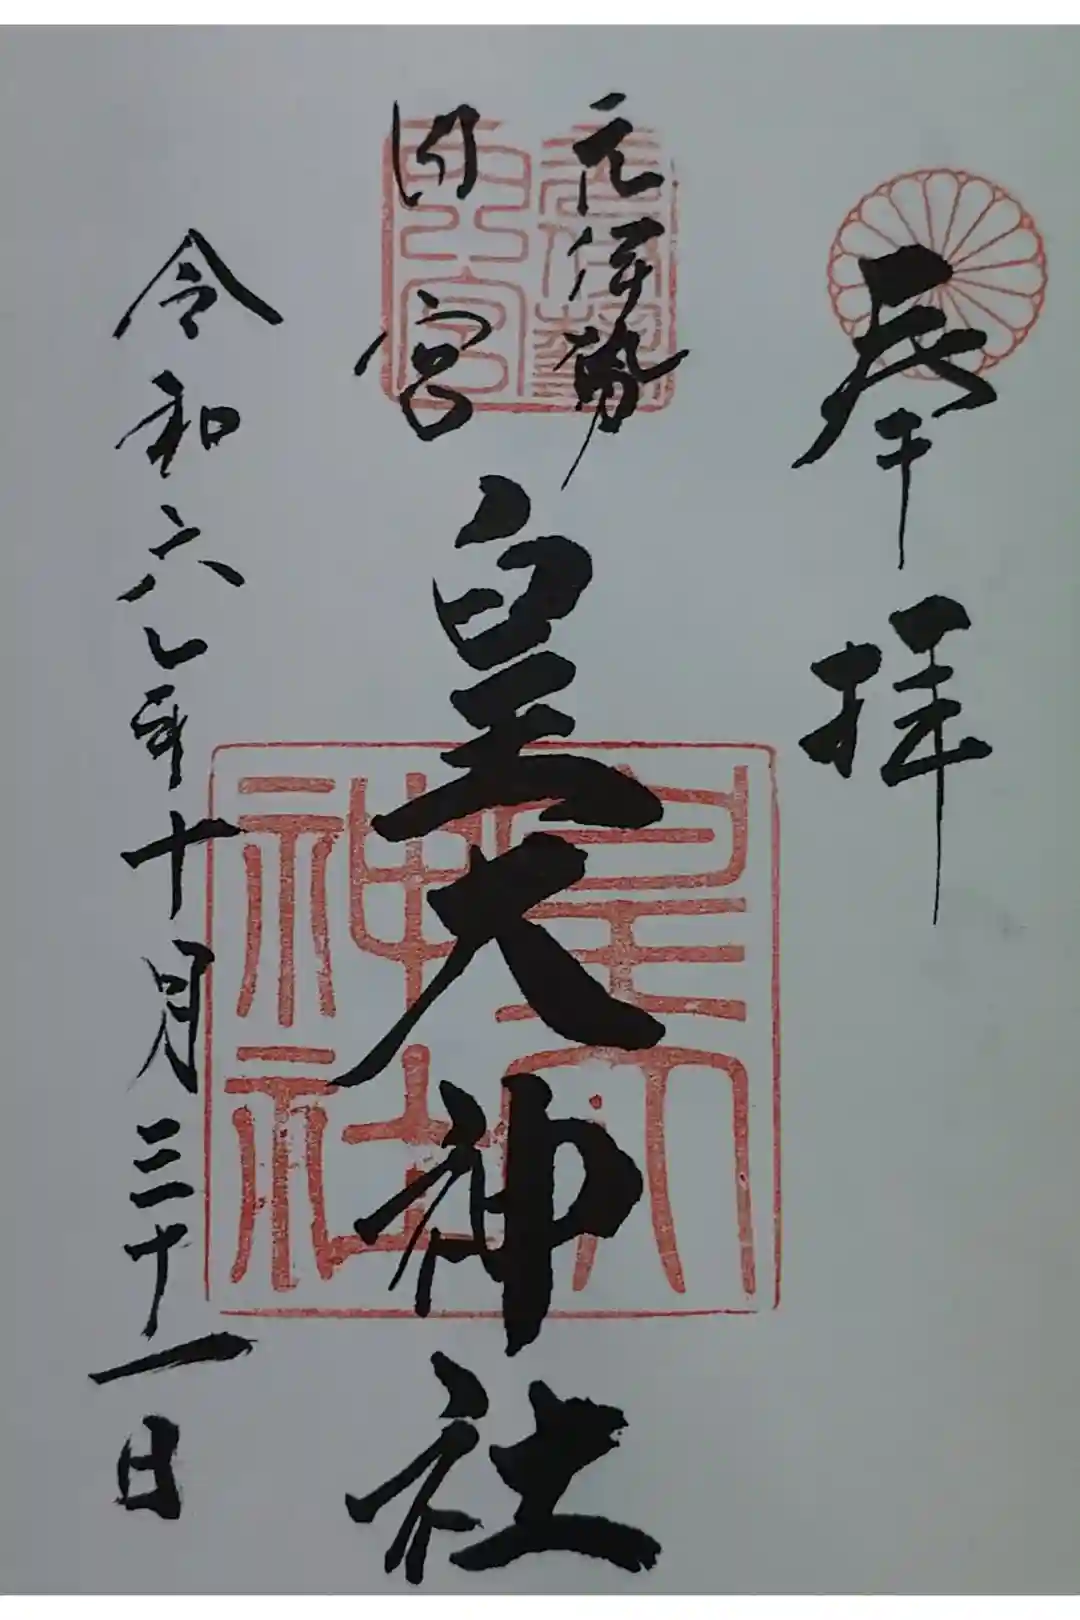 奉拝
元伊勢
内宮
皇大神社
令和六年十月三十一日
元伊勢
内宮
皇大
神社